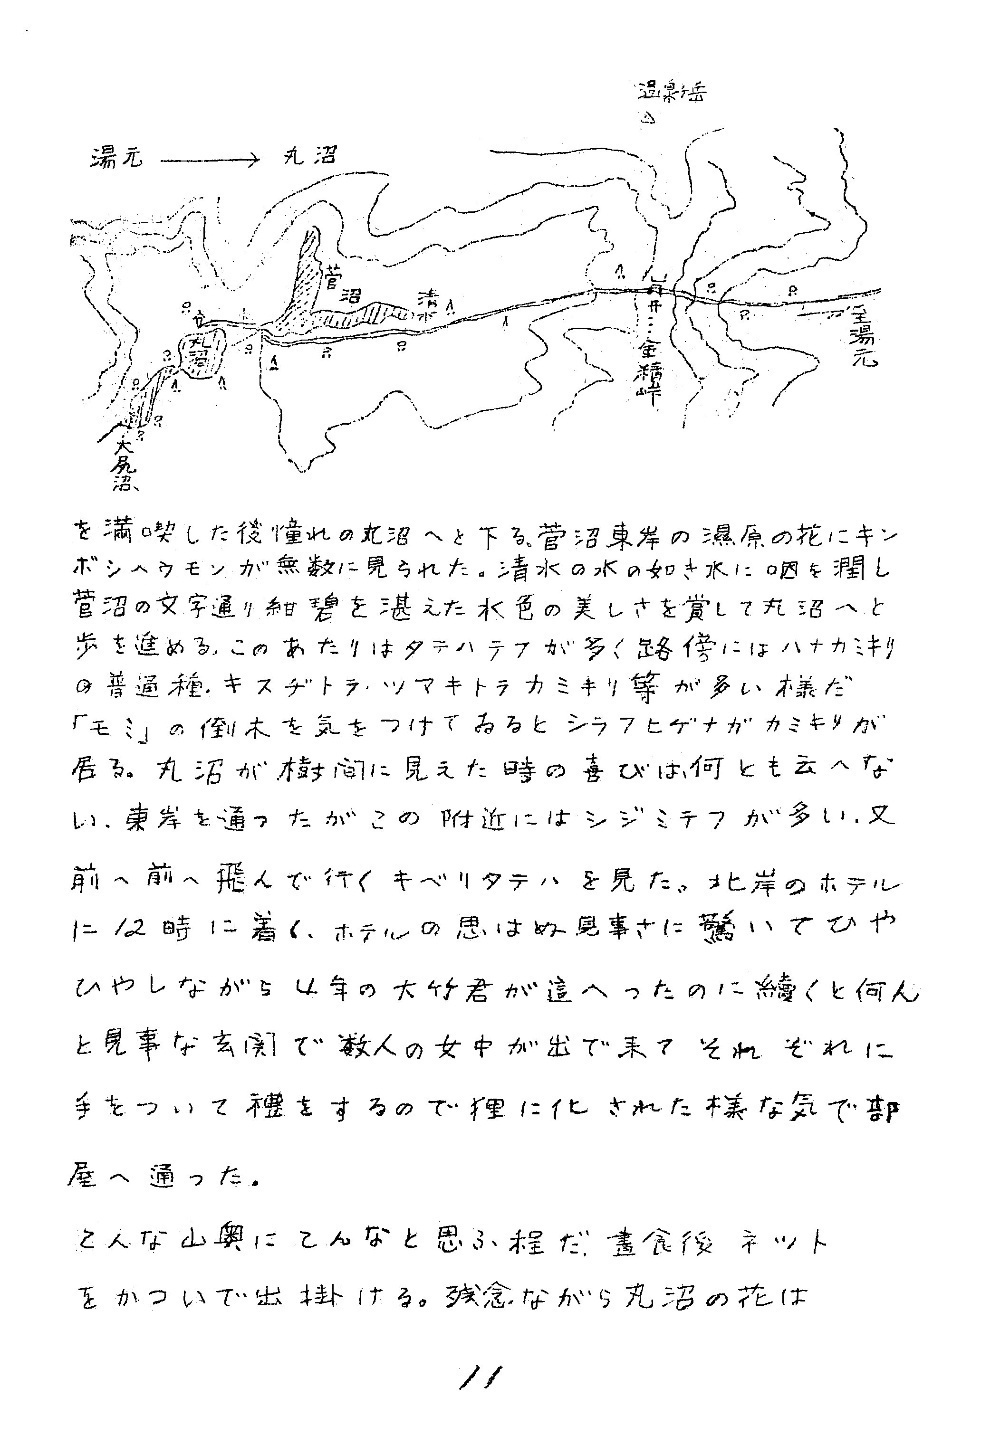 温泉ヶ岳
湯元 ⟶ 丸沼
菅沼
清水
丸沼
金精峠
至湯元
大尻沼、
を満喫した後憧れの丸沼へと下る、菅沼東岸の濕原の花にキン
ボシヘウモンが無数に見られた。清水の水の如き水に咽を潤し
菅沼の文字通り紺碧を湛えた水色の美しさを賞して丸沼へと
歩を進める、このあたりはタテハテフが多く路傍にはハナカミキリ
の普通種、キスヂトラ・ツマキトラカミキリ等が多い様だ
「モミ」の倒木を気をつけてゐるとシラフヒゲナガカミキリが
居る。丸沼が樹間に見えた時の喜びは、何とも云へな
い、東岸を通つたがこの附近にはシジミテフが多い、又
前へ前へ飛んで行くキベリタテハを見た。北岸のホテル
に12時に着く、ホテルの思はぬ見事さに驚いてひや
ひやしながら4年の大竹君が這へつたのに續くと何ん
と見事な玄関で数人の女中が出て来て それ ぞれに
手をついて禮をするので狸に化された様な気で部
屋へ通つた。
こんな山奥にこんなと思ふ程だ、晝食後 ネツト
をかついで出掛ける。残念ながら丸沼の花は
11